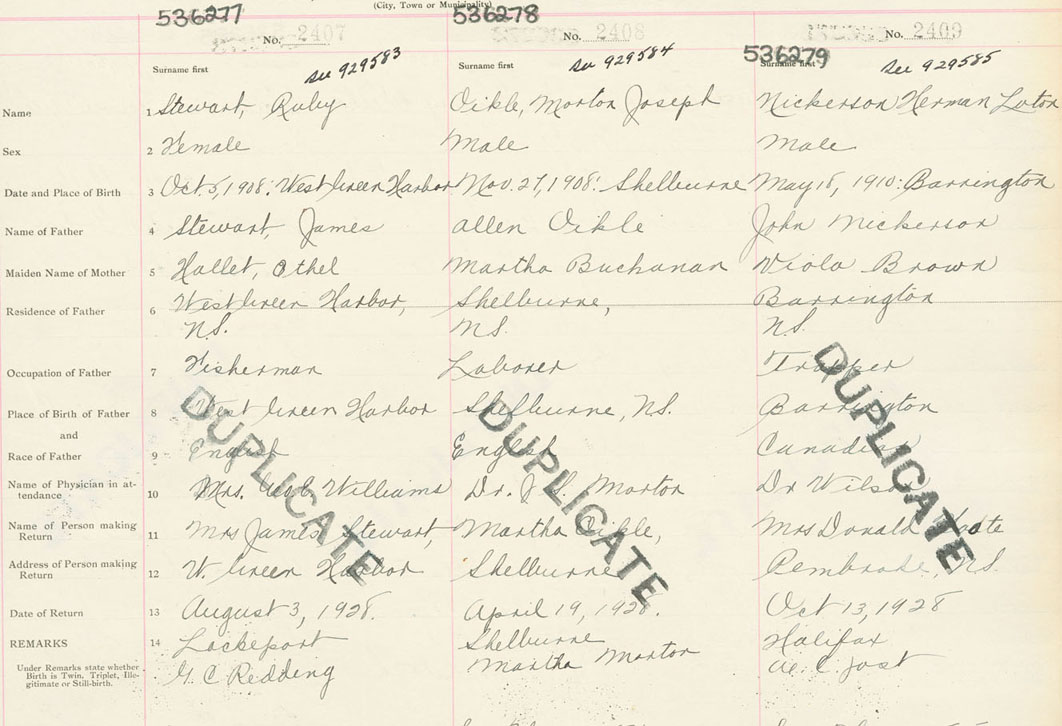 (City, Town or Municipality)
536277 536278
No. 2407 No. 2408 No. 2409
536279
Surname first Surname first Surname first
see 929583 see 929584 see 929585
Name 1 Stewart, Ruby Oikle, Morton Joseph Nickerson Herman
Sex 2 Female Male Male
Date and Place of Birth 3 Oct. 5, 1908: West Green Harbor Nov. 27, 1908: Shelburne May 18, 1910: Barrington
Name of Father 4 Stewart, James Allen Oikle John Nickerson
Maiden Name of Mother 5 Hallet, Othel Martha Buchanan Viola Brown
Residence of Father 6 West Green Harbor, Shelburne, Barrington
N.S. N.S. N.S.
Occupation of Father 7 Fisherman Laborer
Place of Birth of Father 8 West Green Harbor Shelburne, N.S. Barrington
and
Race of Father 9 English English Canadian
Name of Physician in at-
tendance 10 Mrs. Williams Dr. Morton Dr Wilson
Name of Person making
Return 11 Mrs James Stewart, Martha Oikle, Mrs Donald
Address of Person making
Return 12 W. Green Harbor Shelburne Pembroke, N.S.
Date of Return 13 August 3, 1928. April 19, 1928. Oct 13, 1928
REMARKS 14 Lockeport Shelburne Halifax
Under Remarks state whether
Birth is Twin, Triplet, Ille-
gitimate or Still-birth.
G. C Redding Martha Morton A. C. Jost
DUPLICATE DUPLICATE DUPLICATE